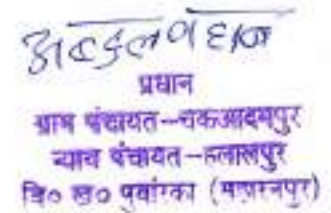 अब्दुल वहाब
प्रधान
ग्राम पंचायत-चकआदमपुर
न्याय पंचायत-हलालपुर
वि० ख० पुवांरका (सहारनपुर)